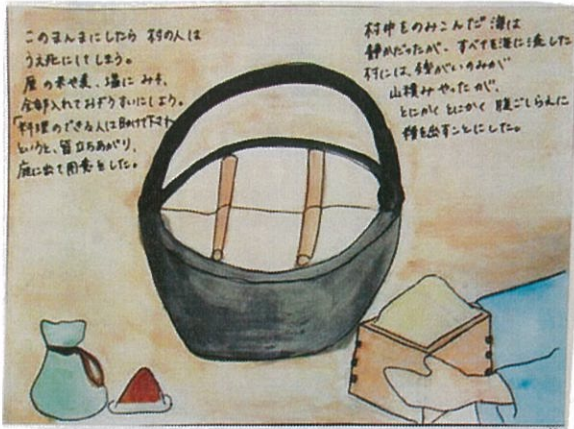 このまんまにしたら 村の人は
うえ死にしてしまう。
の米や麦、塩に みそ、
全部入れておぞうすいにしよう。
「料理のできる人は助けて下さ
というと、皆立ちあがり、
庭に出て用意をした。
村中をのみこんだ 海は
静かだったが、すべてを海に流した
村には、残がいのみが
山積みやったが、
とにかく とにかく 腹ごしらえに
を出すことにした。